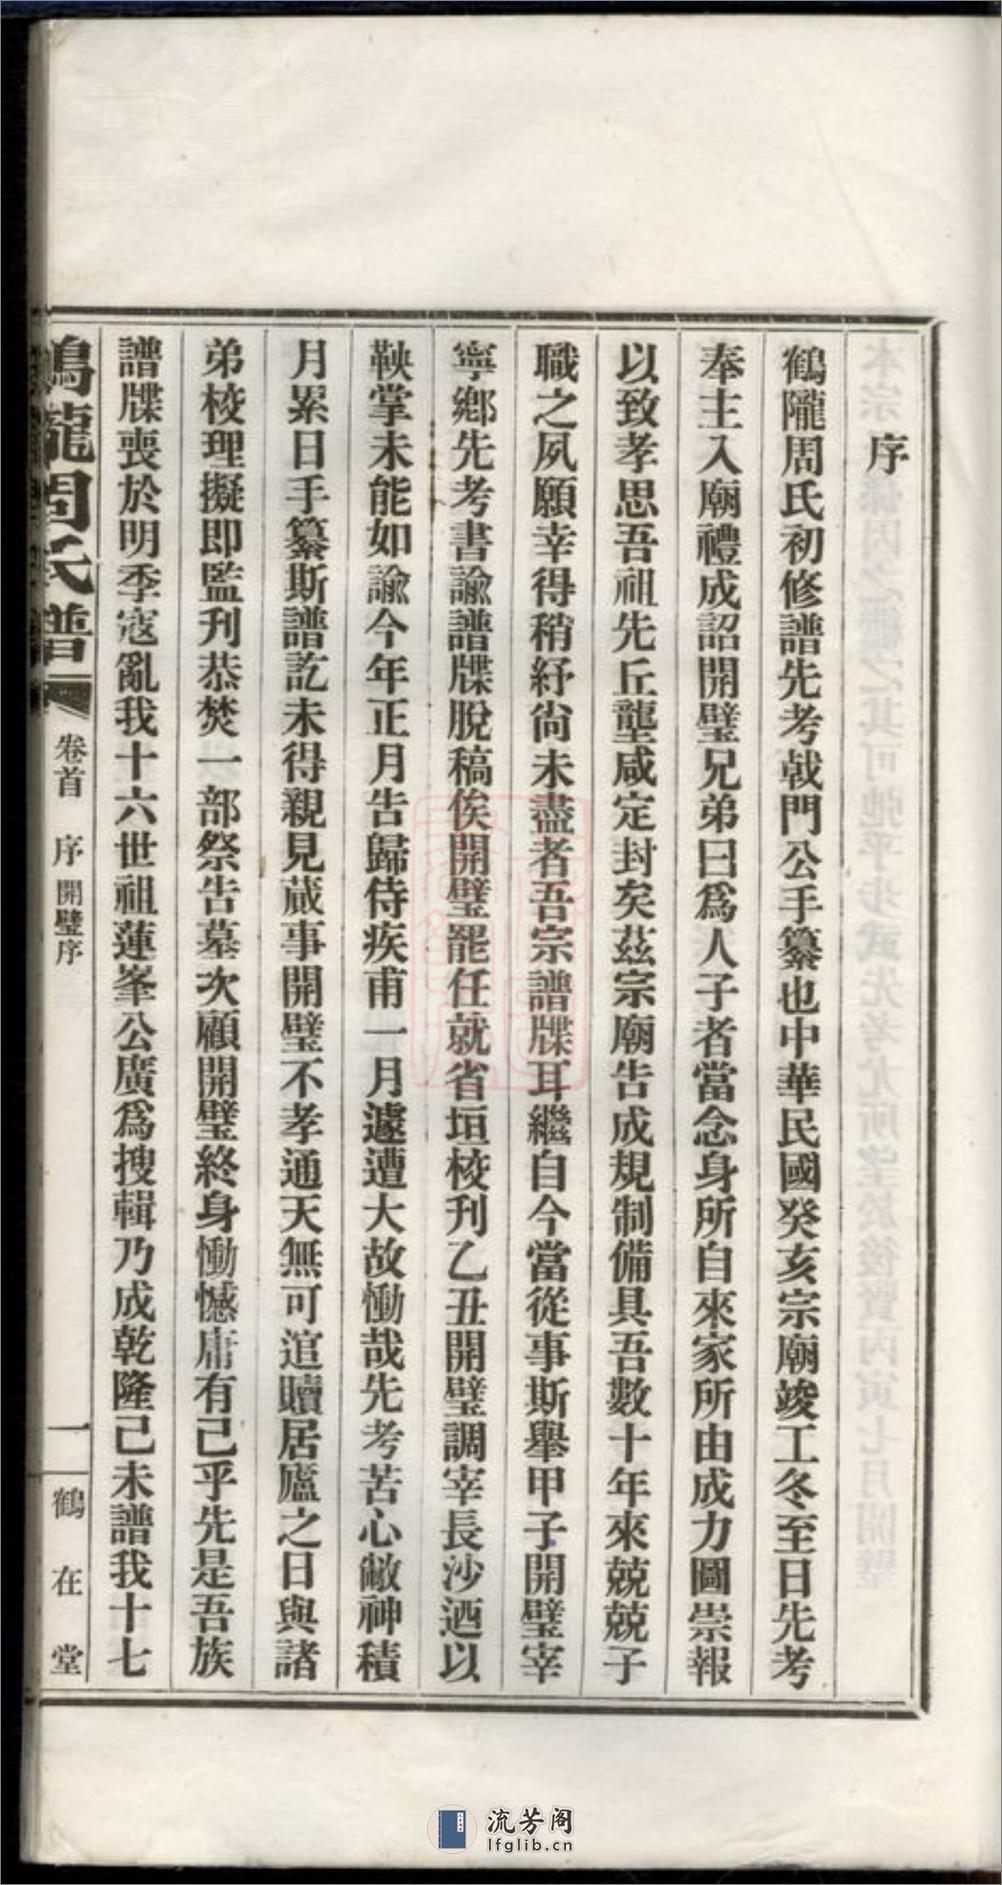 序
鶴隴周氏初修譜先考戟門公手纂也中華民國癸亥宗廟竣工冬至日先考
奉主入廟禮成詔開璧兄弟曰爲人子者當念身所自來家所由成力圖崇報
以致孝思吾祖先丘壟咸定封矣茲宗廟告成規制備具吾數十年來兢兢子
職之夙願幸得稍紓尙未盡者吾宗譜牒耳繼自今當從事斯舉甲子開璧宰
寧鄕先考書諭譜牒脫稿俟開璧罷任就省垣校刋乙丑開璧調宰長沙迺以
鞅掌未能如諭今年正月告歸侍疾甫一月遽遭大故慟哉先考苦心敝神積
月累日手纂斯譜訖未得親見蕆事開璧不孝通天無可逭贖居廬之日與諸
弟校理擬即監刋恭焚一部祭告墓次顧開璧終身慟憾庸有已乎先是吾族
譜牒喪於明季寇亂我十六世祖蓮峯公廣爲搜輯乃成乾隆己未譜我十七
鶴隴周氏譜
卷首 序 開璧序
一
鶴在堂
流芳阁
lfglib.cn